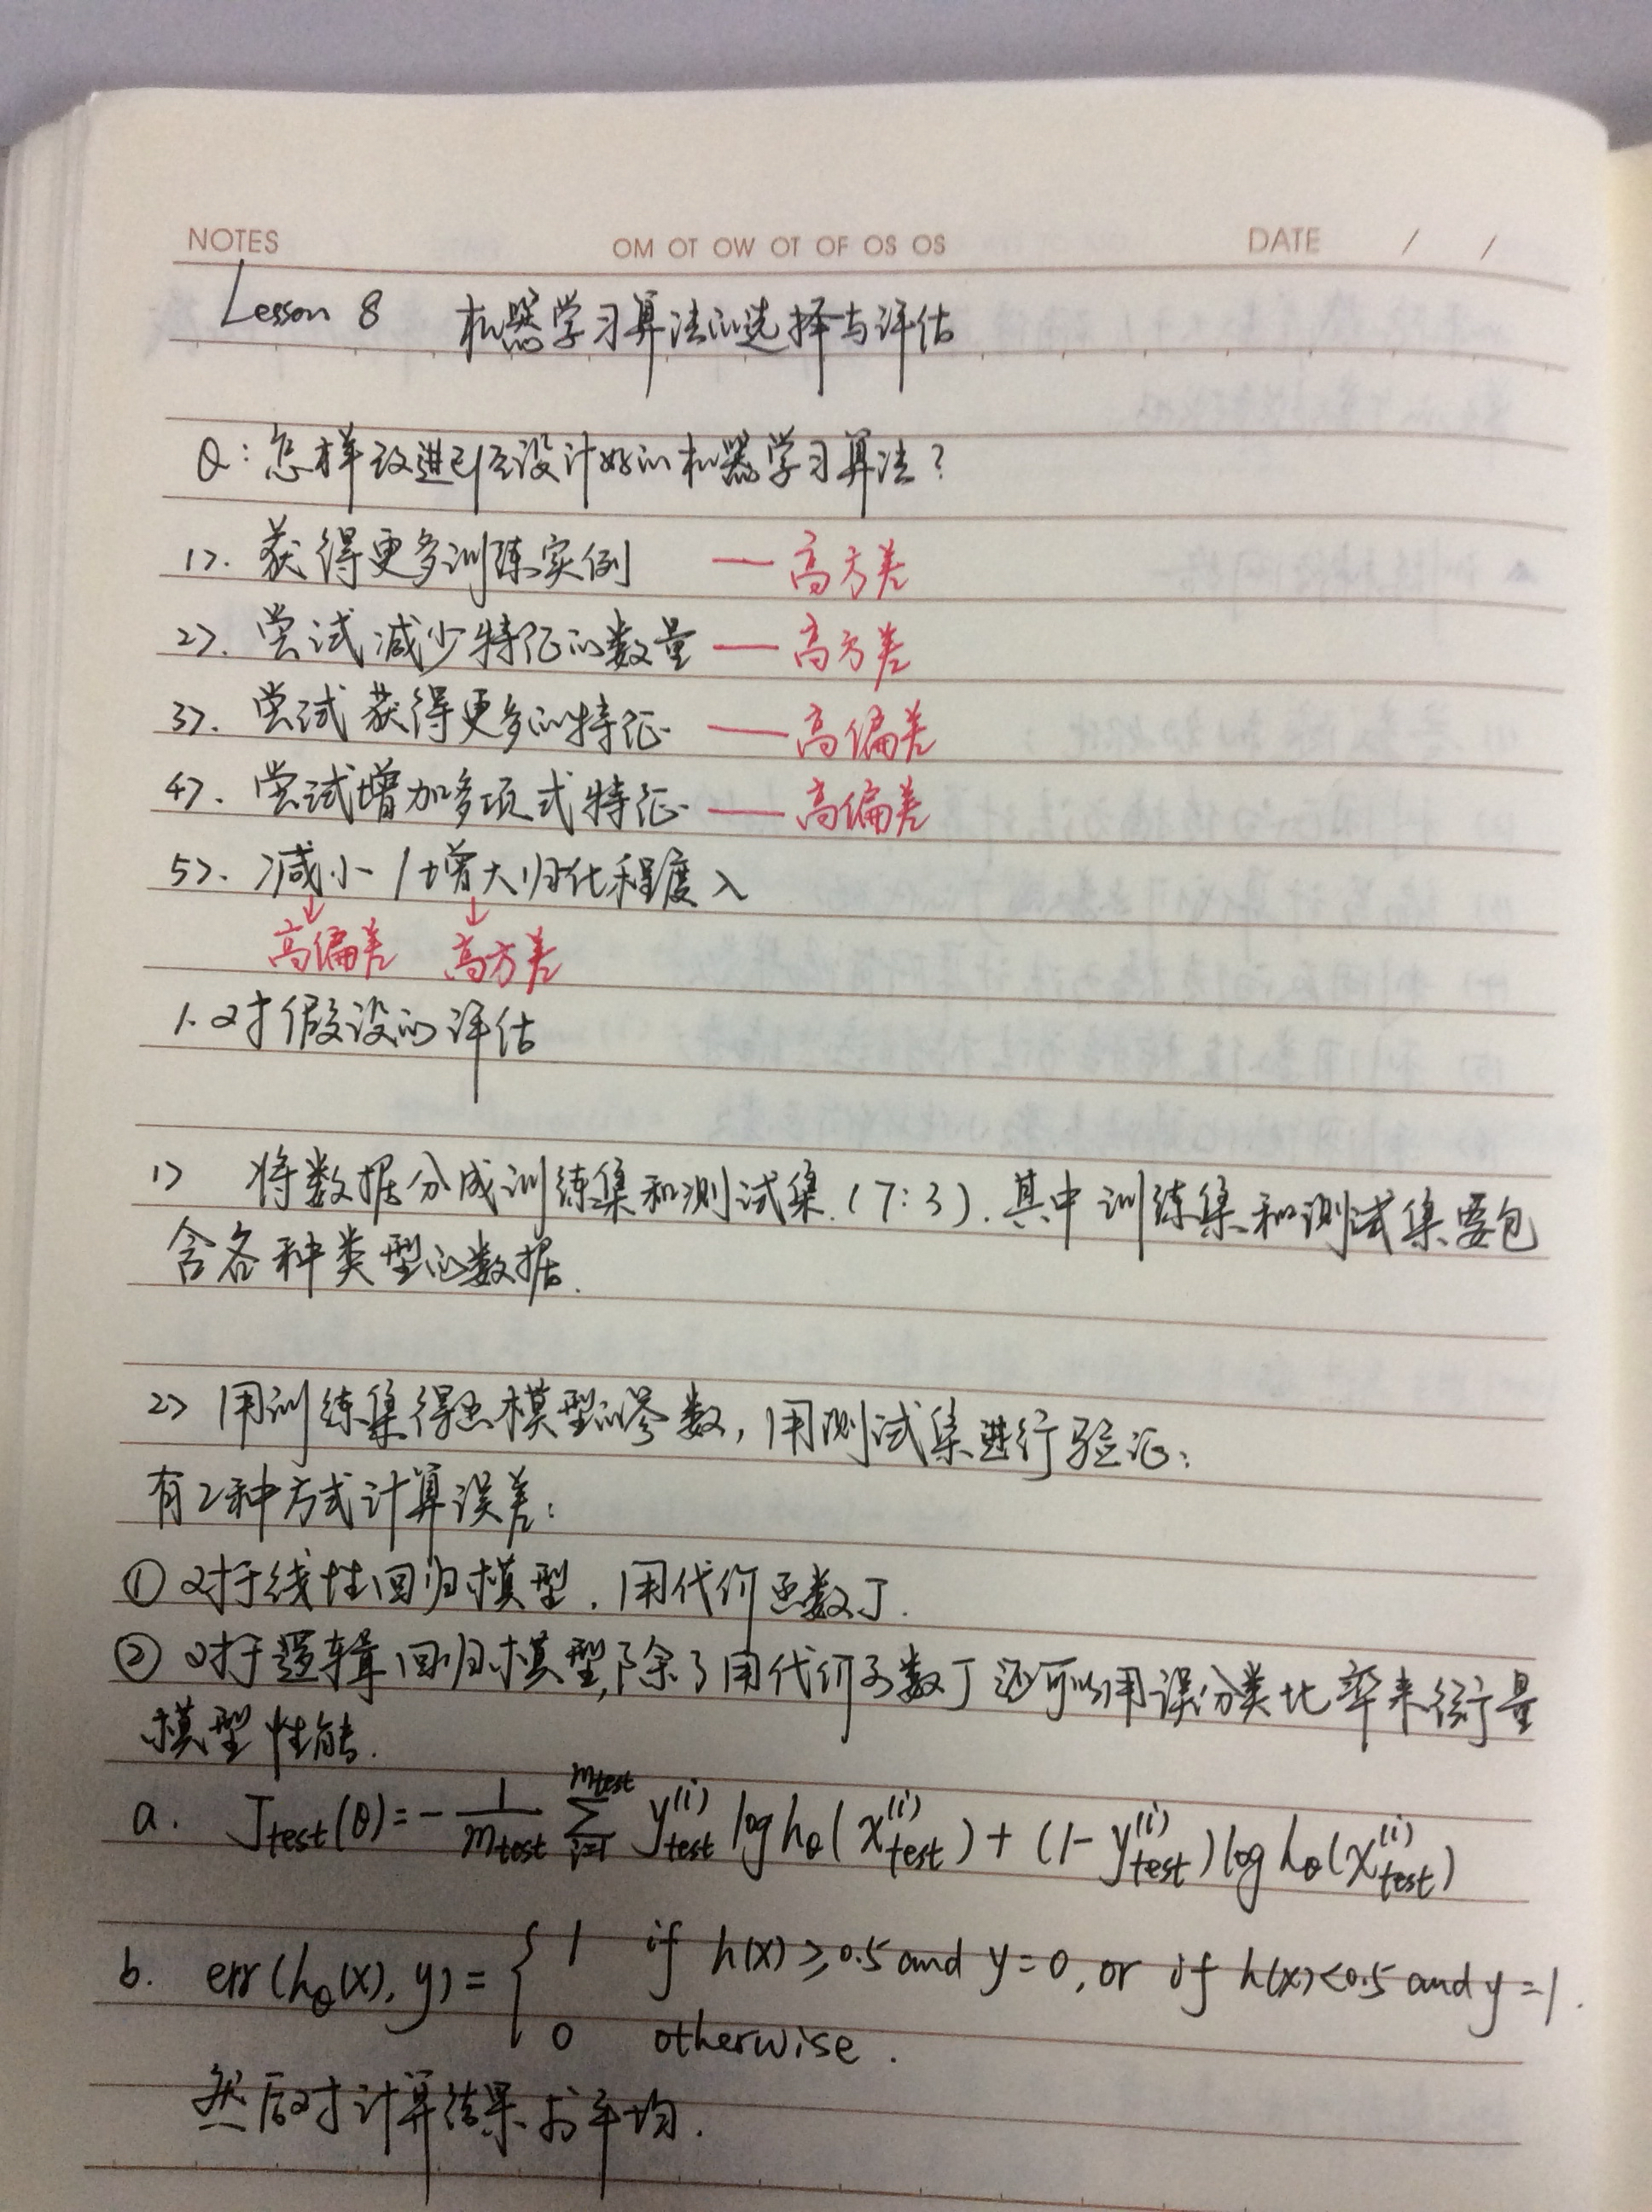 NOTES OM OT OW OT OF OS OS DATE / /
Lesson 8 机器学习算法的选择与评估
Q: 怎样改进已经设计好的机器学习算法?
1>. 获得更多训练实例 — 高方差
2>. 尝试减少特征的数量 — 高方差
3>. 尝试获得更多的特征 — 高偏差
4>. 尝试增加多项式特征 — 高偏差
5>. 减小/增大归化程度λ
↓ ↓
高偏差 高方差
1. 对假设的评估
1> 将数据分成训练集和测试集.(7:3).其中训练集和测试集要包
含各种类型的数据.
2> 用训练集得出模型的参数,用测试集进行验证;
有2种方式计算误差:
① 对于线性回归模型.用代价函数J.
② 对于逻辑回归模型,除了用代价函数J还可以用误分类比率来衡量
模型性能.
a. J_test(θ)=-\frac{1}{m_test}\sum_{i=1}^{m_test} y_test^{(i)} log h_θ(x_test^{(i)})+(1-y_test^{(i)})log h_θ(x_test^{(i)})
b. err(h_θ(x),y)={ 1 if h(x)≥0.5 and y=0,or if h(x)<0.5 and y=1.
0 otherwise.
然后对计算结果求平均.